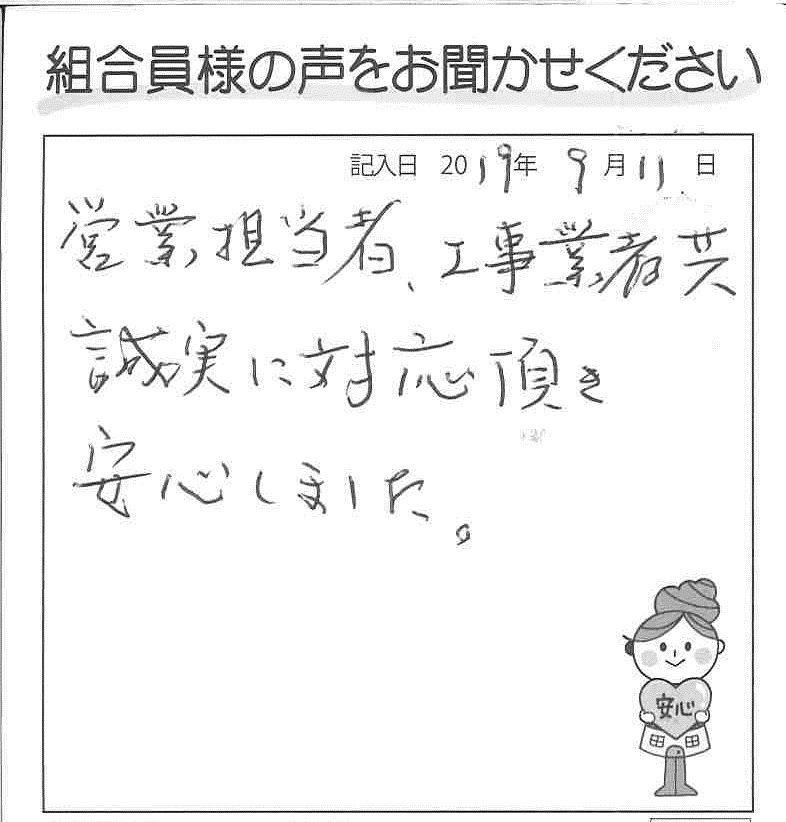 組合員様の声をお聞かせください
記入日 2019年 9月11日
営業担当者、工事業者共
誠実に対応頂き
安心しました。
安心